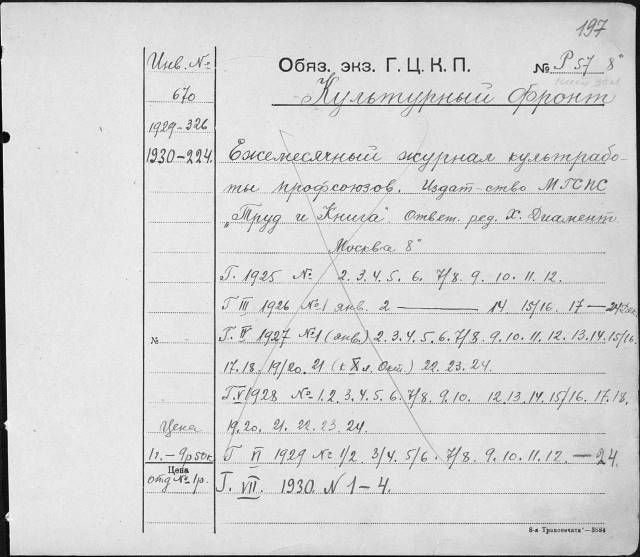 197
Инв. №
Обяз. экз. Г. Ц. К. П. № Р 57 8°
670
Культурный фронт
1929-326
1930-224.
Ежемесячный журнал культрабо-
ты профсоюзов. Издат-ство МГСПС
„Труд и Книга". Ответ. ред. Х. Диамент
Москва 8°
Г. 1925 № 2. 3. 4. 5. 6. 7/8. 9. 10. 11. 12.
Г III 1926 №1 янв. 2 — 14 15/16. 17 — 24 Дек.
№ Г. IV 1927 №1 (янв.) 2. 3. 4. 5. 6. 7/8. 9. 10. 11. 12. 13. 14. 15/16.
17. 18. 19/20. 21 (к X л. Окт.) 22. 23. 24.
Г. V 1928 № 1. 2. 3. 4. 5. 6. 7/8. 9. 10. 12. 13. 14. 15/16. 17. 18.
Цена 19. 20. 21. 22. 23. 24.
1 г. – 9р 50к. Г VI 1929 № 1/2. 3/4. 5/6. 7/8. 9. 10. 11. 12. — 24.
Цена
отд № 1 р. Г. VII. 1930. N 1–4.
8-я Транспечать—3584